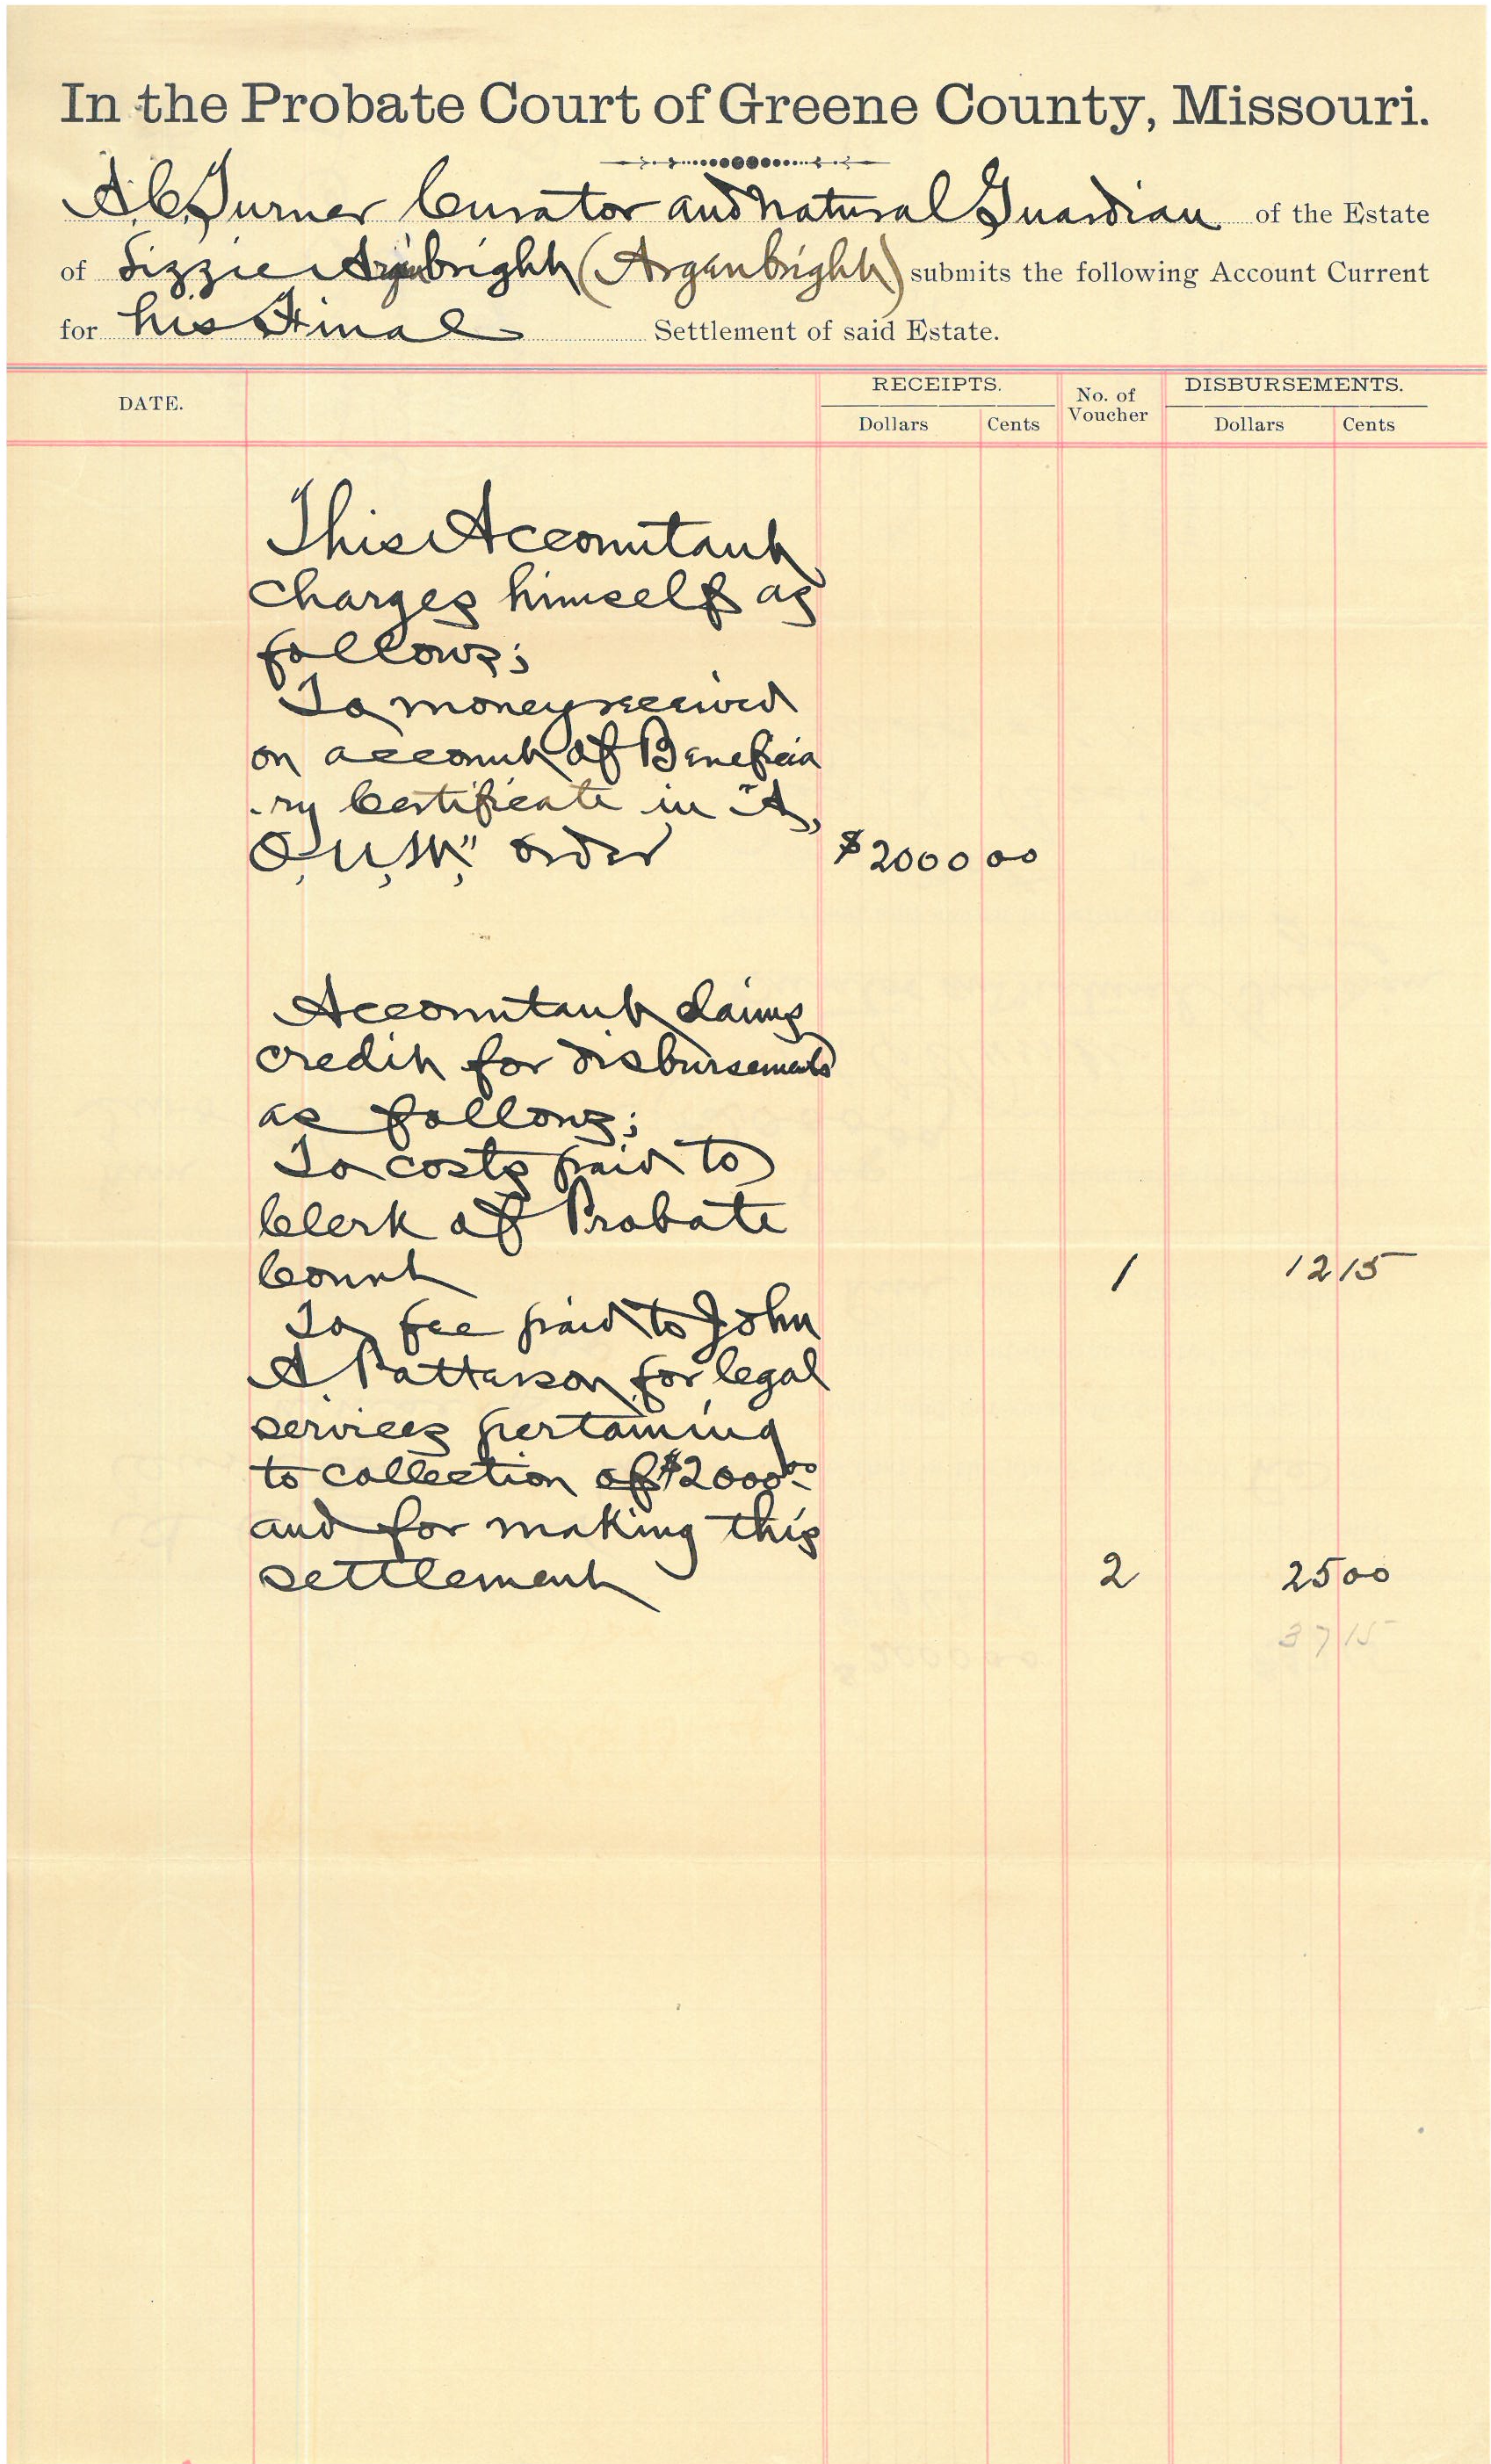 In the Probate Court of Greene County, Missouri.
A. C. Turner Curator and Natural Guardian of the Estate
of Lizzie Arganbright (Arganbright) submits the following Account Current
for his Final Settlement of said Estate.
DATE. RECEIPTS. No. of Voucher DISBURSEMENTS.
Dollars Cents Dollars Cents
This Accountant
charges himself as
follows;
To money received
on account of Beneficia
-ry Certificate in "A,
O, U, W," order $2000 00
Accountant claims
credit for disbursements
as follows;
To costs paid to
Clerk of Probate
Court 1 12 15
To fee paid to John
A. Patterson for legal
services pertaining
to collection of $2000 00
and for making this
settlement 2 25 00
37 15